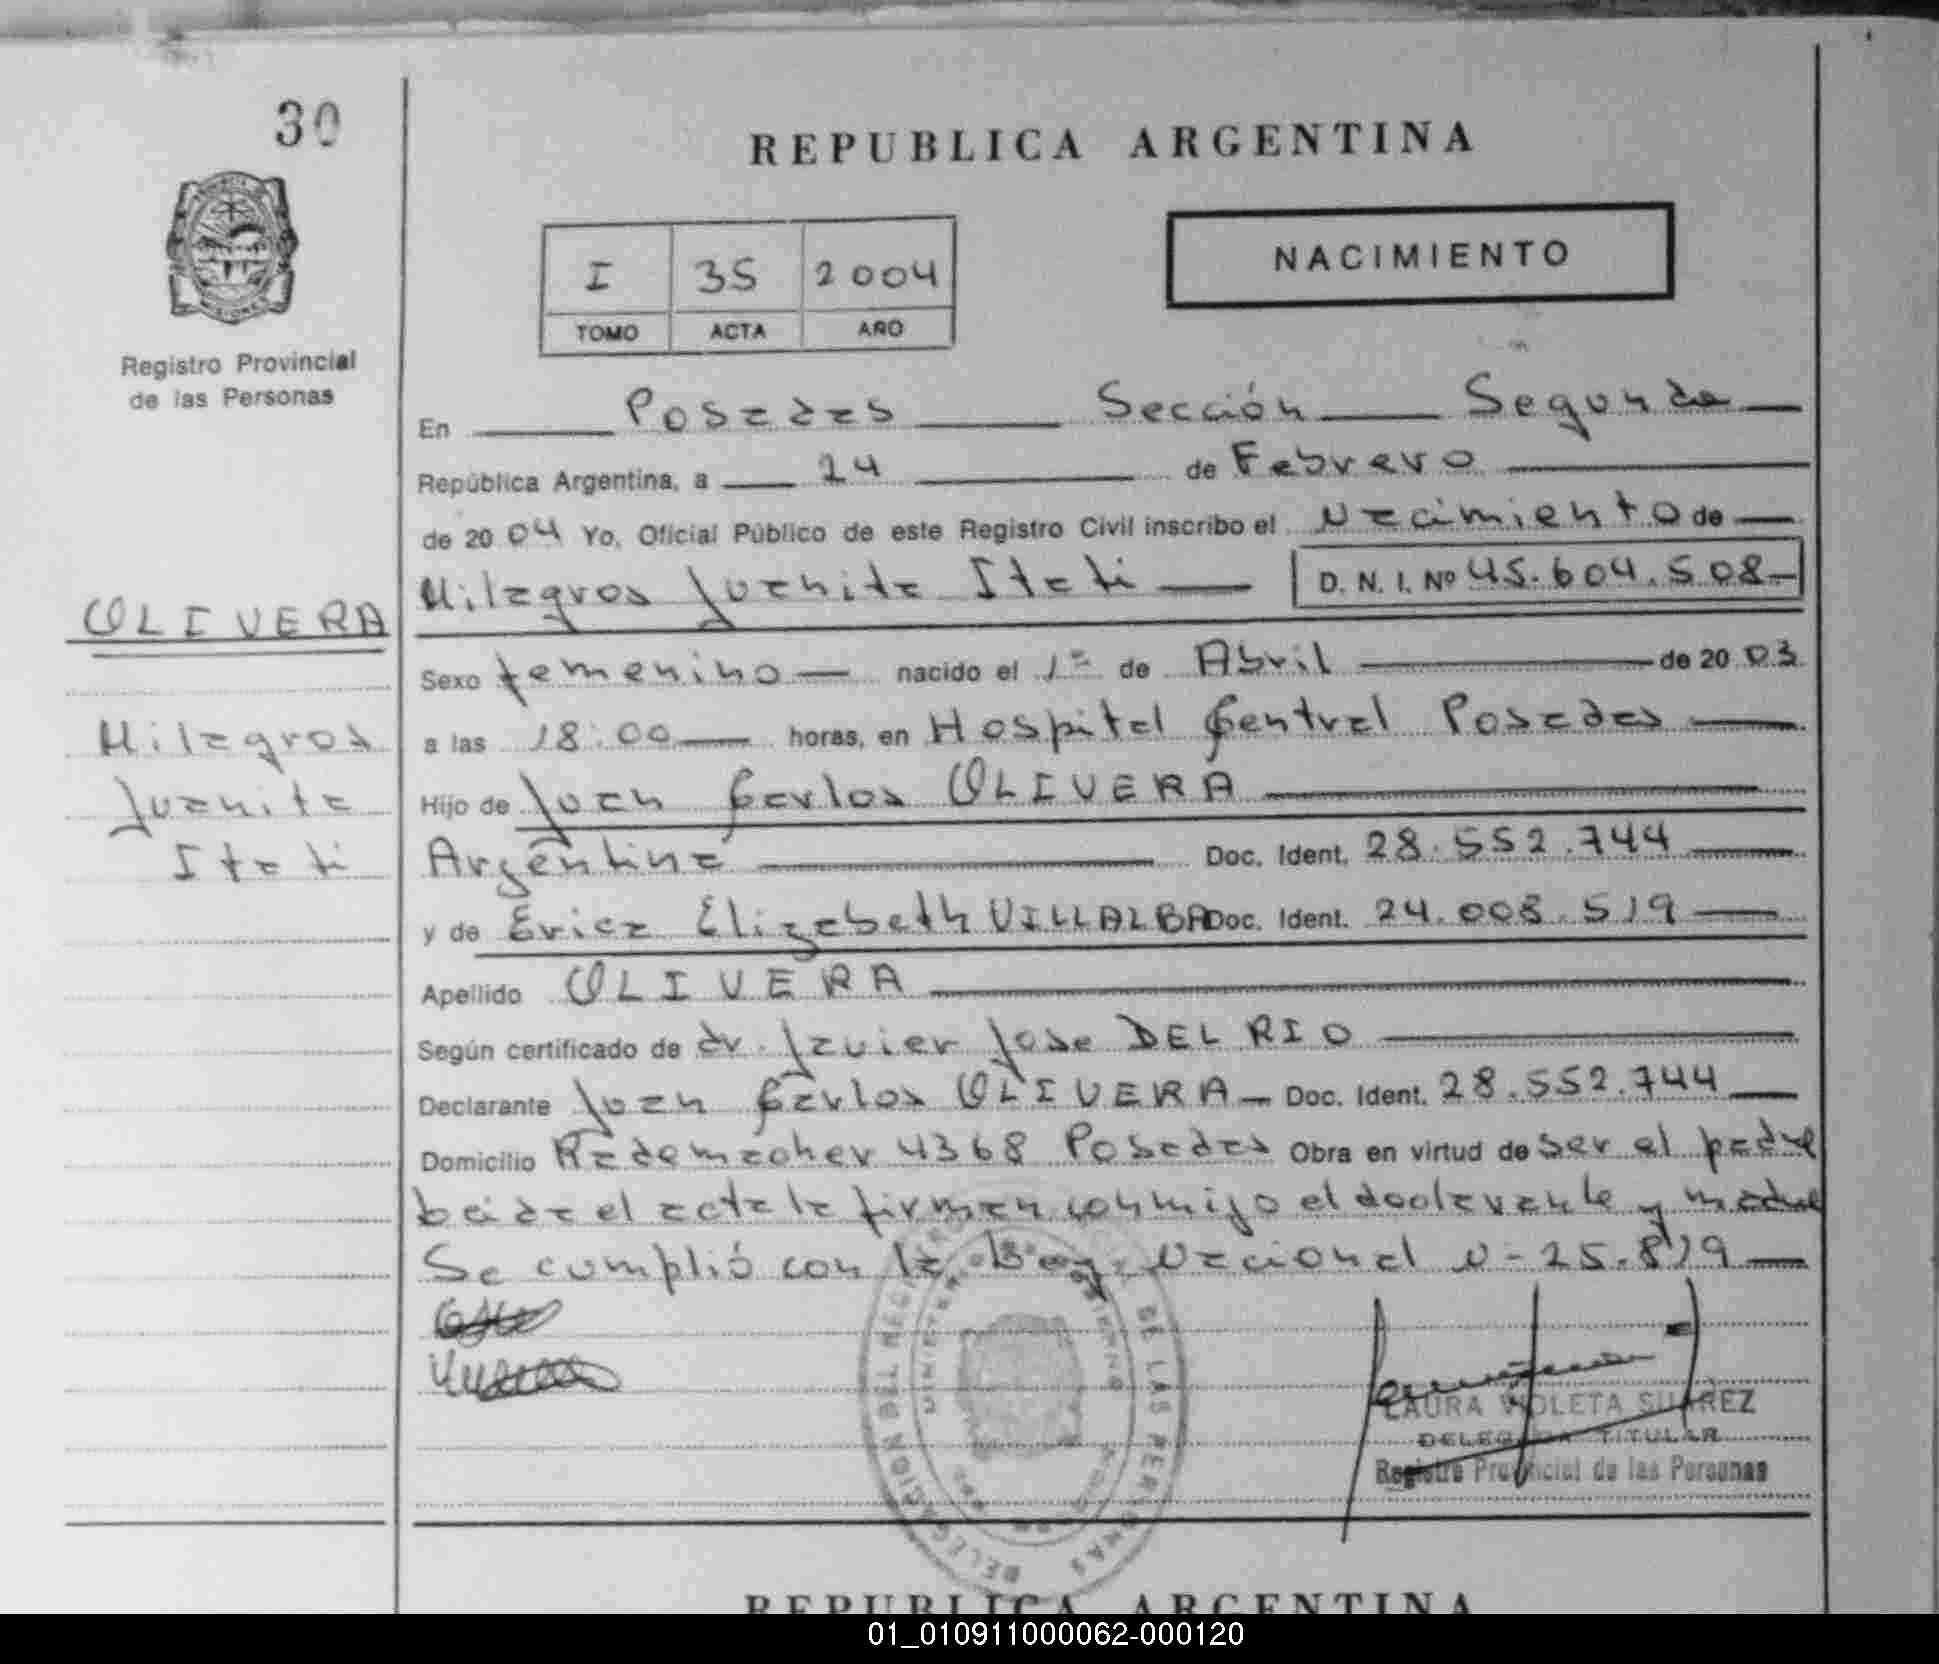 30
REPUBLICA ARGENTINA
NACIMIENTO
I 35 2004
TOMO ACTA AÑO
Registro Provincial
de las Personas
En Posadas Sección Segunda
República Argentina, a 24 de Febrero
de 2004 Yo, Oficial Público de este Registro Civil inscribo el Nacimiento de
Milagros Juanita Itati D. N. I. Nº 45.604.508
OLIVERA
Sexo femenino nacido el 1º de Abril de 2003
Milagros
a las 18:00 horas, en Hospital Central Posadas
Juanita
Hijo de Juan Carlos OLIVERA
Itati
Argentina Doc. Ident. 28.552.744
y de Erica Elizabeth VILLALBA Doc. Ident. 24.008.519
Apellido OLIVERA
Según certificado de dr. Javier Jose DEL RIO
Declarante Juan Carlos OLIVERA Doc. Ident. 28.552.744
Domicilio Rademacher 4368 Posadas Obra en virtud de ser el padre
Leida el acta la firman conmigo el declarante y madre
Se cumplió con la Ley Nacional N- 25.819
DELEGACION DEL REGISTRO DE LAS PERSONAS
LAURA VIOLETA SUAREZ
DELEGADA TITULAR
Registro Provincial de las Personas
REPUBLICA ARGENTINA
01_010911000062-000120